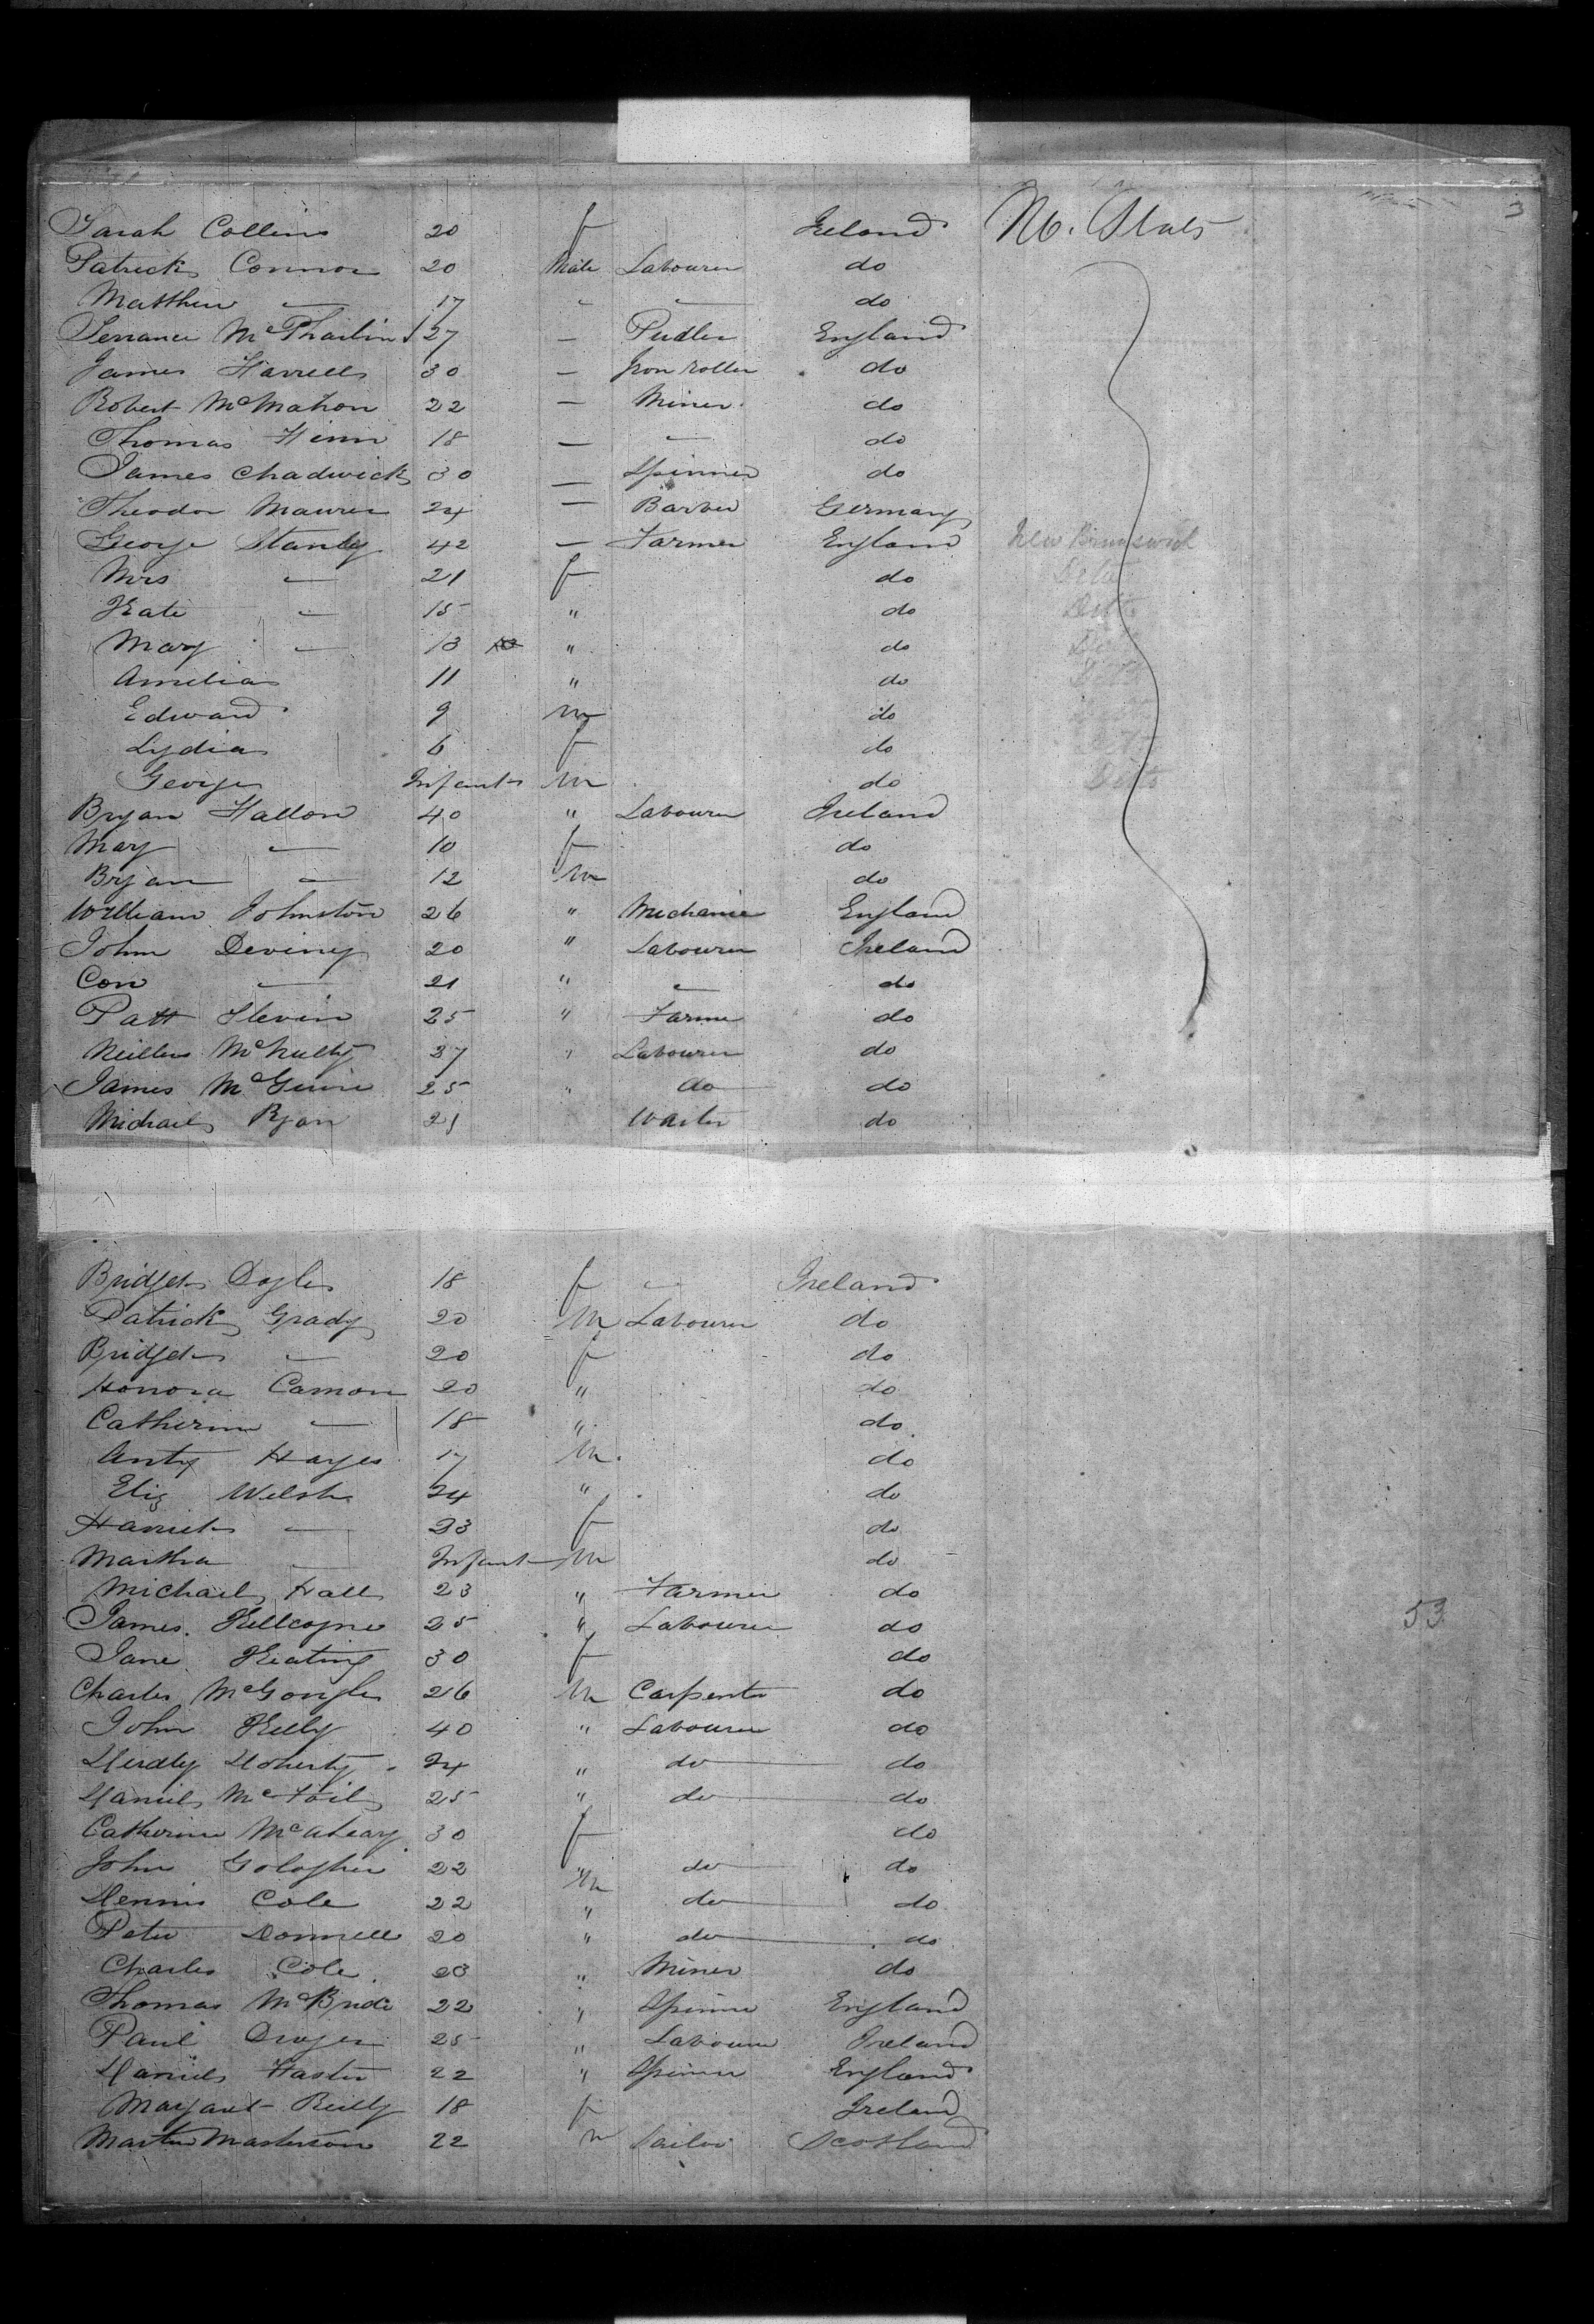 3
Sarah Collins 20 f Ireland No. Stats
Patrick Connor 20 Male Labourer do
Matthew — 17 " — do
Terrance McPharlin 27 — Pudler England
James Harrells 30 — Iron roller do
Robert McMahon 22 — Miner do
Thomas Finn 18 — — do
James Chadwick 30 — Spinner do
Theodor Maurer 24 — Barber Germany
George Stanley 42 — Farmer England New Brunswick
Mrs — 21 f do Ditto
Kate — 15 " do Ditto
Mary — 13 " do Ditto
Amelia 11 " do Ditto
Edward 9 m do
Lydia 6 f do Ditto
George Infant m do Ditto
Bryan Fallon 40 " Labourer Ireland
Mary — 10 f do
Bryan — 12 m do
William Johnston 26 " Mechanic England
John Deviney 20 " Labourer Ireland
Con — 21 " — do
Patt Slevin 25 " Farmer do
McNulty 37 " Labourer do
James McGuire 25 " do do
Michael Ryan 21 Waiter do
Bridget Doyle 18 f — Ireland
Patrick Grady 20 M Labourer do
Bridget — 20 f do
Honora Camon 20 " do
Catherine — 18 " do
Anty Hayes 17 M do
Eliz Welsh 24 " do
Harriet — 23 f do
Martha — Infant M do
Michael Hall 23 " Farmer do
James Killcoyne 25 " Labourer do 53
Jane Keating 30 f do
Charles McGongle 26 M Carpenter do
John Kelly 40 " Labourer do
Doherty 24 " do do
Daniel McFoil 25 " do do
Catherine McAleary 30 f do
John Golagher 22 M do do
Dennis Cole 22 " do do
Peter Donnell 20 " do do
Charles Cole 23 " Miner do
Thomas McBride 22 " Spinner England
Paul Dwyer 25 " Labourer Ireland
Daniel Foster 22 " Spinner England
Margaret Reilly 18 f Ireland
Martin Masterson 22 m Sailor Scotland